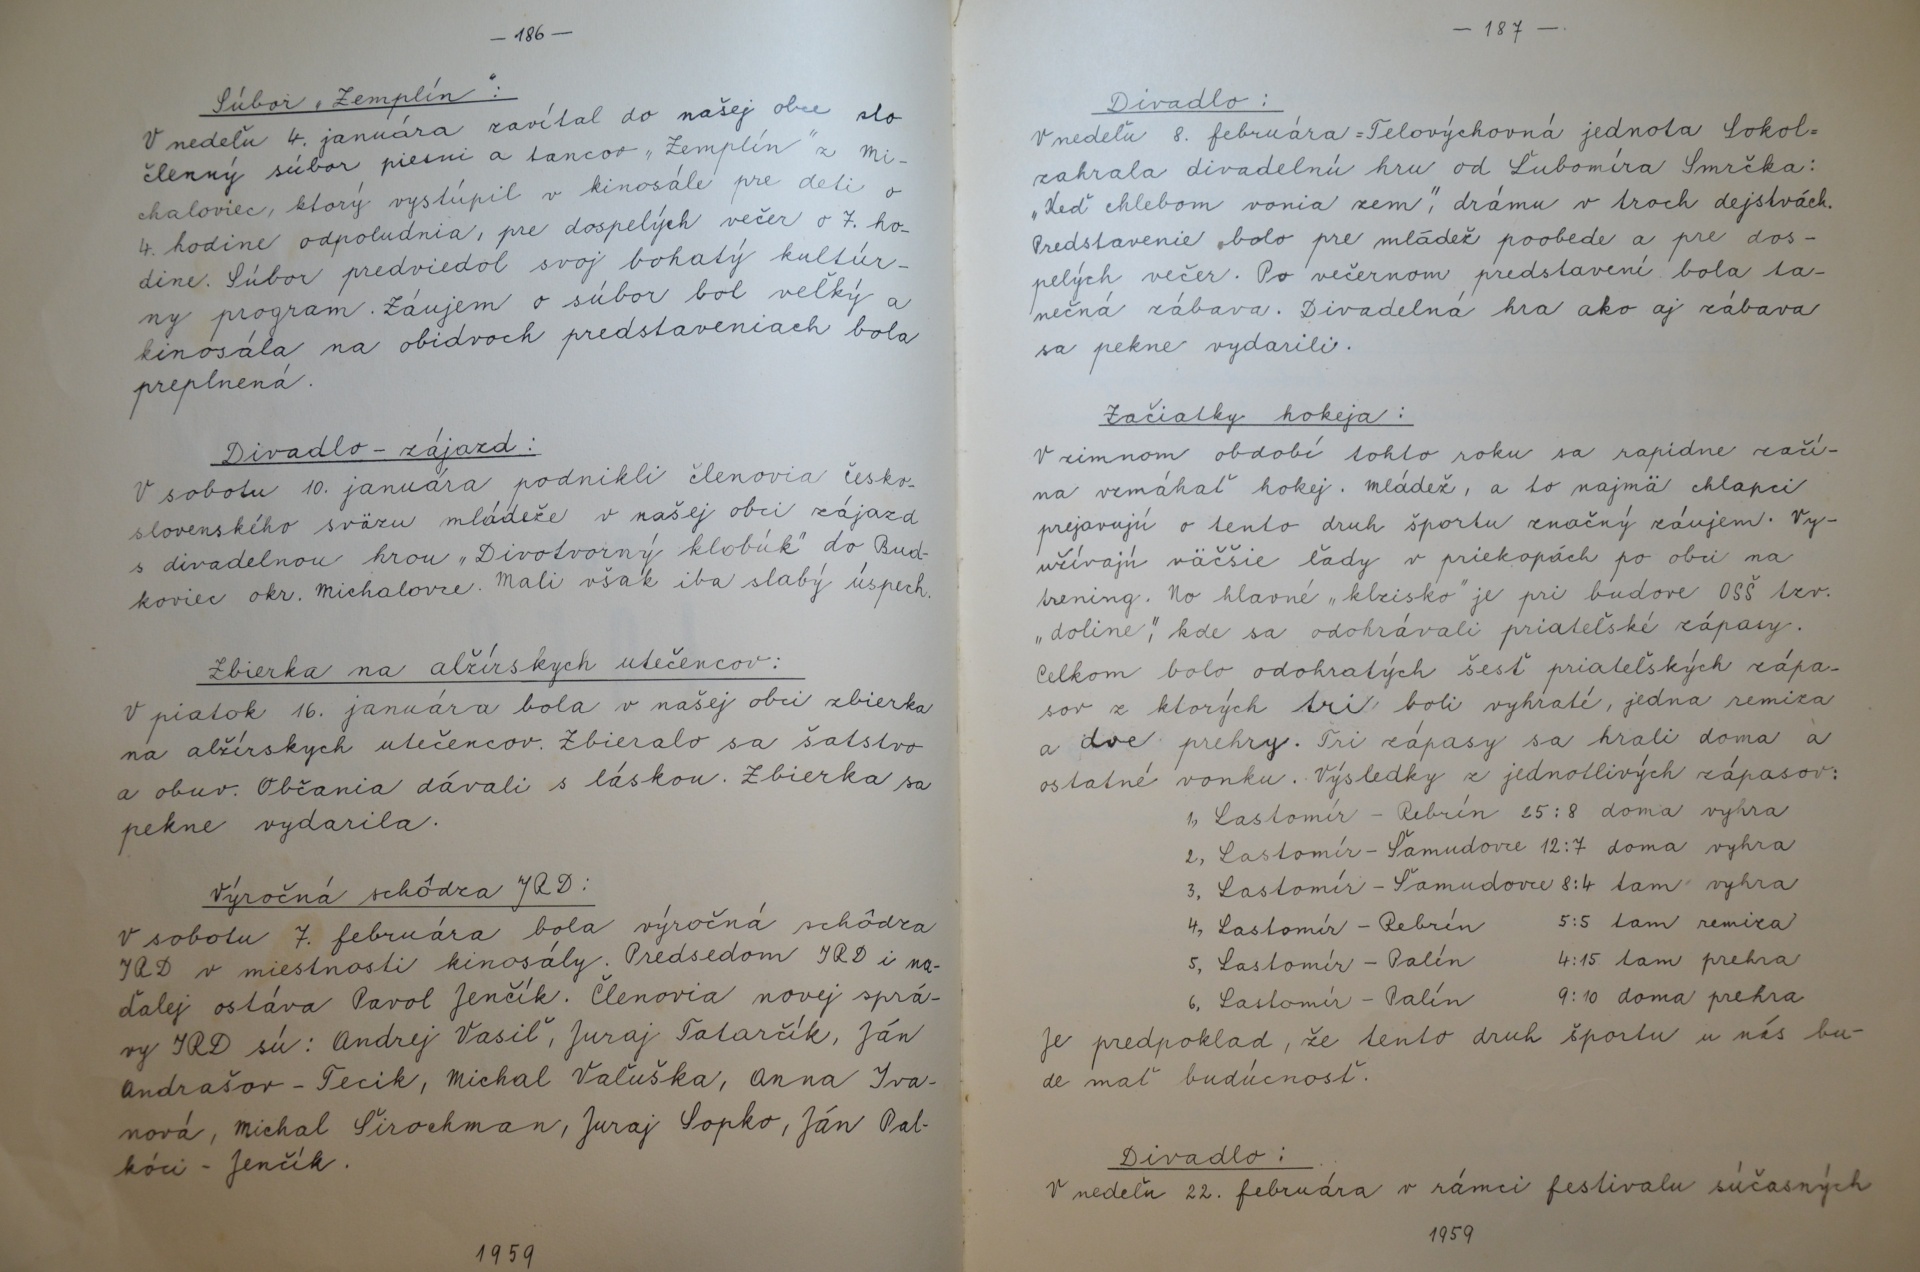 – 186 –
Súbor „Zemplín“:
V nedeľu 4. januára zavítal do našej obce sto
členný súbor piesni a tancov „Zemplín“ z Mi-
chaloviec, ktorý vystúpil v kinosále pre deti o
4. hodine odpoludnia, pre dospelých večer o 7. ho-
dine. Súbor predviedol svoj bohatý kultúr-
ny program. Záujem o súbor bol veľký a
kinosála na obidvoch predstaveniach bola
preplnená.
Divadlo – zájazd:
V sobotu 10. januára podnikli členovia česko-
slovenského sväzu mládeže v našej obci zájazd
s divadelnou hrou „Divotvorný klobúk“ do Bud-
koviec okr. Michalovce. Mali však iba slabý úspech.
Zbierka na alžírskych utečencov:
V piatok 16. januára bola v našej obci zbierka
na alžírskych utečencov. Zbieralo sa šatstvo
a obuv. Občania dávali s láskou. Zbierka sa
pekne vydarila.
Výročná schôdza JRD:
V sobotu 7. februára bola výročná schôdza
JRD v miestnosti kinosály. Predsedom JRD i na-
ďalej ostáva Pavol Jenčík. Členovia novej sprá-
vy JRD sú: Andrej Vasiľ, Juraj Tatarčík, Ján
Andrašov – Tecik, Michal Vaľuška, Anna Iva-
nová, Michal Širochman, Juraj Sopko, Ján Pal-
kóci – Jenčík.
1959
– 187 –
Divadlo:
V nedeľu 8. februára =Telovýchovná jednota Sokol=
zahrala divadelnú hru od Ľubomíra Smrčka:
„Keď chlebom vonia zem“, drámu v troch dejstvách.
Predstavenie bolo pre mládež poobede a pre dos-
pelých večer. Po večernom predstavení bola ta-
nečná zábava. Divadelná hra ako aj zábava
sa pekne vydarili.
Začiatky hokeja:
V zimnom období tohto roku sa rapidne začí-
na vzmáhať hokej. Mládež, a to najmä chlapci
prejavujú o tento druh športu značný záujem. Vy-
užívajú väčšie ľady v priekopách po obci na
trening. No hlavné „klzisko“ je pri budove OSŠ tzv.
„doline“, kde sa odohrávali priateľské zápasy.
Celkom bolo odohratých šesť priateľských zápa-
sov z ktorých tri boli vyhraté, jedna remiza
a dve prehry. Tri zápasy sa hrali doma a
ostatné vonku. Výsledky z jednotlivých zápasov:
1, Lastomír – Rebrín 25:8 doma vyhra
2, Lastomír – Šamudovce 12:7 doma vyhra
3, Lastomír – Šamudovce 8:4 tam vyhra
4, Lastomír – Rebrín 5:5 tam remiza
5, Lastomír – Palín 4:15 tam prehra
6, Lastomír – Palín 9:10 doma prehra
Je predpoklad, že tento druh športu u nás bu-
de mať budúcnosť.
Divadlo:
V nedeľu 22. februára v rámci festivalu súčasných
1959